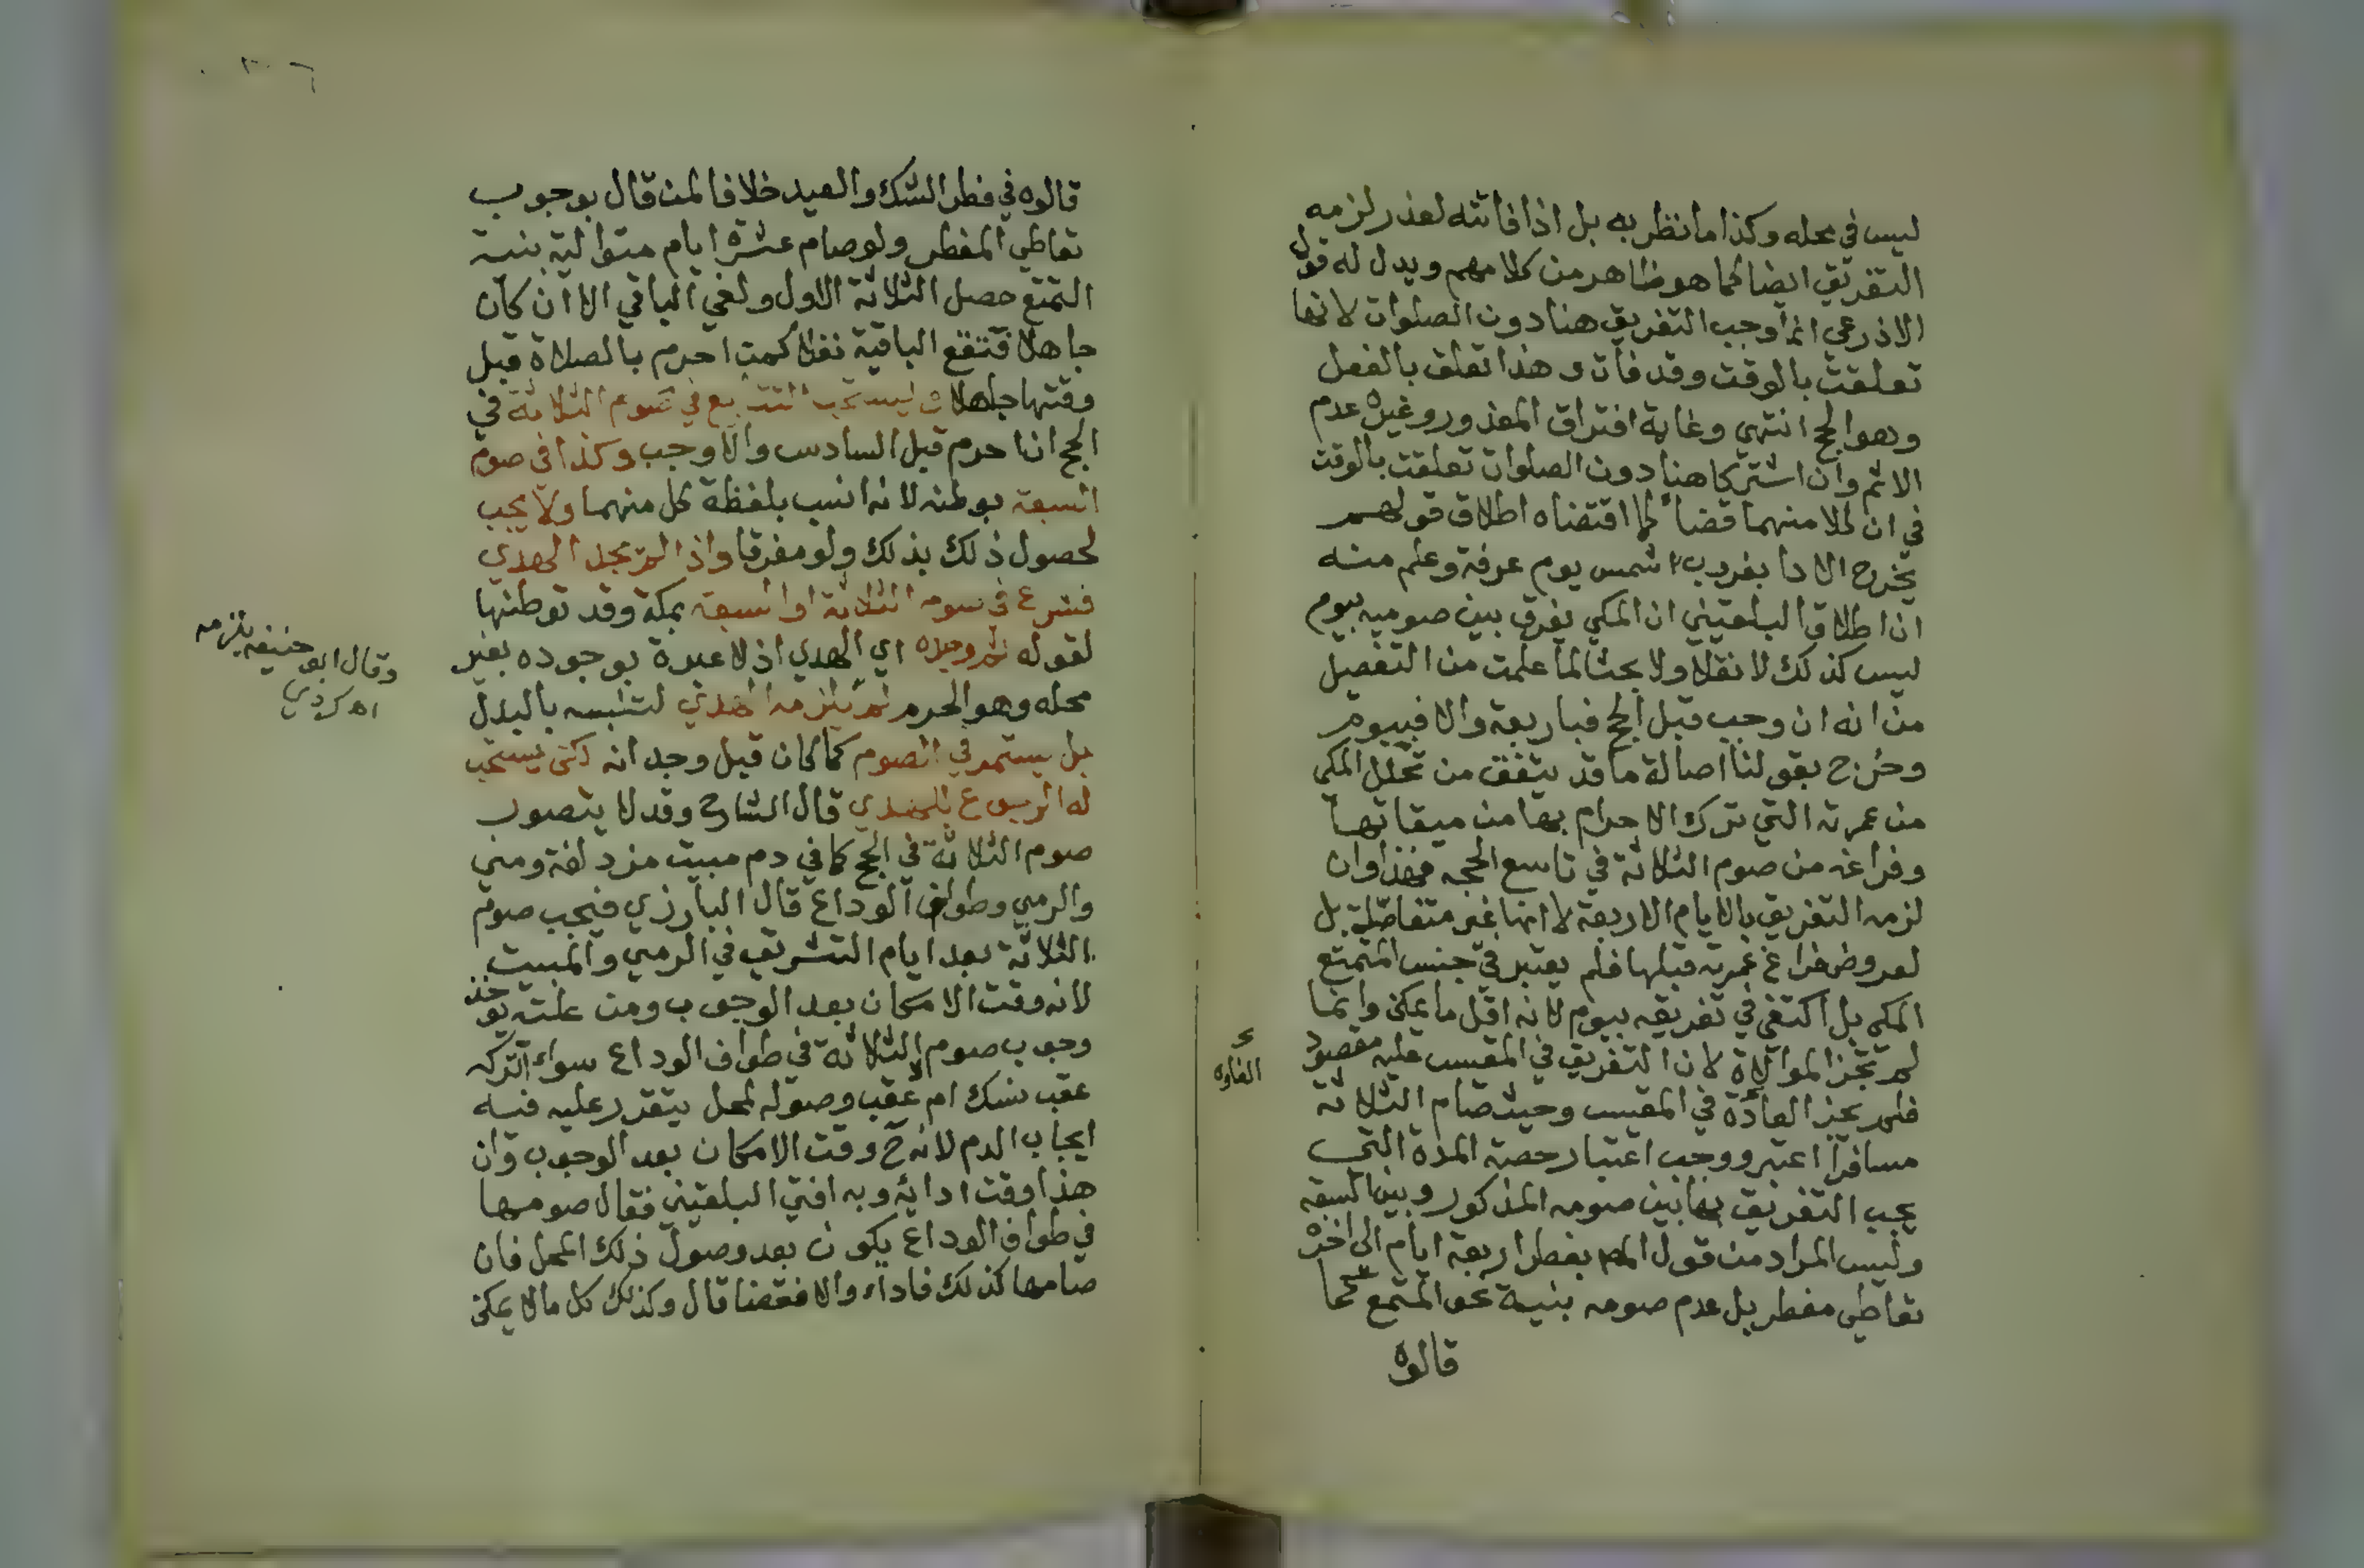 ليس في محله وكذا ما نظر به بل اذا فاتته لعذر لزمه
التفريق ايضا كما هو ظاهر من كلامهم ويدل له قول
الاذرعي انما وجب التفريق هنا دون الصلوات لانها
تعلقت بالوقت وقد فات وهذا تعلق بالفعل
وهو الحج انتهي وغاية افتراق المعذور وغيره عدم
الاثم وان اشتركا هنا دون الصلوات تعلقت بالوقت
في ان لملا منهما قضاء لما اقتضاه اطلاق قولهم
يخرج الادا بغروب شمس يوم عرفة وعلم منه
ان اطلاق البلقيني ان المكي يفرق بين صوميه بيوم
ليس كذلك لا نقلا ولا بحثا لما علمت من التفصيل
من انه ان وجب قبل الحج فباربعة والا فبيوم
وخرج بقولنا اصالة ما قد يتفق من تحلل المكي
من عمرته التي ترك الاحرام بها من ميقاتها
وفراغه من صوم الثلاثة في تاسع الحجه فهذا وان
لزمه التفريق بالايام الاربعة لا انها غير متفاصلة بل
لعروض فراغ عمرته قبلها فلم يعتبر في جنس المتمتع
المكي بل اكتفي في تفريقه بيوم لانه اقل ما يمكن وانما
لم تجز الموالاة لان التفريق في المقيس عليه مقصود
فلم يجز العادة في المقيس وحيث صام الثلاثة
مسافرا اعتبر ووجب اعتبار حصة المدة التي
يجب التفريق بها بين صومه المذكور وبين السبعة
وليس المراد من قول المص بفطر اربعة ايام الى اخره
تعاطي مفطر بل عدم صومه بنية نحو المتمتع كما
قالوه
قالوه في فطر الشك والعيد خلافا لمن قال بوجوب
تعاطي المفطر ولو صام عشرة ايام متوالية بنية
التمتع حصل الثلاثة الاول ولغي الباقي الا ان كان
جاهلا فتقع الباقية نفلا كمن احرم بالصلاة قبل
وقتها جاهلا ويستحب التتابع في صوم الثلاثة في
الحج ان احرم قبل السادس والا وجب وكذا في صوم
السبعة بوطنه لانه انسب بلفظة كل منهما ولا يجب
لحصول ذلك بذلك ولو مفرقا واذا لم يجد الهدي
فشرع في صوم الثلاثة او السبعة بمكة وقد توطنها
لقوله ثم وجده اي الهدي اذ لا عبرة بوجوده بغير
محله وهو الحرم لم يلزمه الهدي لتلبسه بالبدل
بل يستمر في الصوم كما كان قبل وجدانه لكن يستحب
له الرجوع للهدي قال الشارح وقد لا يتصور
صوم الثلاثة في الحج كما في دم مبيت مزدلفة ومني
والرمي وطواف الوداع قال البارزي فيجب صوم
الثلاثة بعد ايام التشريق في الرمي والمبيت
لانه وقت الامكان بعد الوجوب ومن علته يوخذ
وجوب صوم الثلاثة في طواف الوداع سواء اتركه
عقب نسك ام لا عقب وصوله لمحل يتقرر عليه فيه
ايجاب الدم لانه ح وقت الامكان بعد الوجوب وان
هذا وقت ادائه وبه افتي البلقيني فقال صومها
في طواف الوداع يكون بعد وصول ذلك المحل فان
صامها كذلك فاداء والا فقضا قال وكذلك كل ما لا يمكن
وقال ابو حنيفه يلزمه
اه كردي